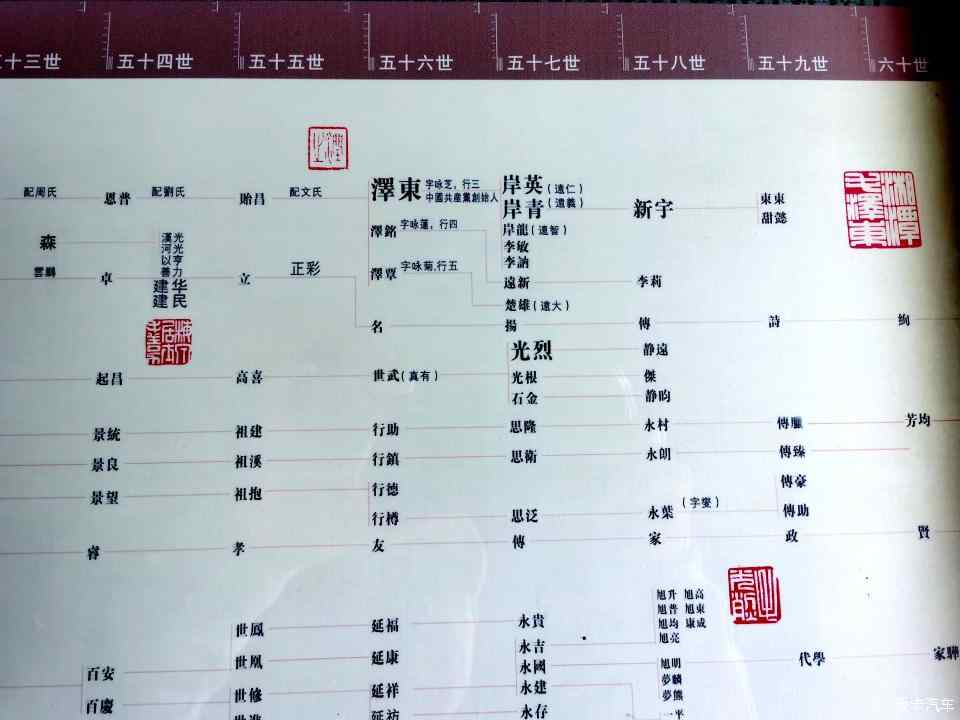 十三世 五十四世 五十五世 五十六世 五十七世 五十八世 五十九世 六十世
配周氏 恩普 配劉氏 貽昌 配文氏 澤東 字咏芝，行三 岸英（遠仁）
中國共産黨創始人 岸青（遠義） 新宇 東東
甜懿
湘潭毛澤東
澤銘 字咏蓮，行四 岸龍（遠智）
森 漢河以善建建 光光亨力华民 李敏
李訥
雲鵬 卓 立 正彩 澤覃 字咏菊,行五 遠新 李莉
楚雄（遠大）
名 揚 傳 詩 絢
光烈 静遠
起昌 高喜 世武（真有） 光根 傑
石金 静昀
景統 祖建 行助 思隆 永村 傳臚 芳均
景良 祖溪 行鎮 思衛 永朗 傳臻
景望 祖抱 行德 傳豪
行樽 思泛 永葉（字變） 傳助
睿 孝 友 傳 家 政 賢
旭升 旭高
旭普 旭東
旭均 康成
旭亮
世鳳 延福 永貴
永吉
百安 世凰 延康 永國 旭明 代學 家驊
夢麟
百慶 世修 延祥 永建 夢熊
延祊 永存 一平